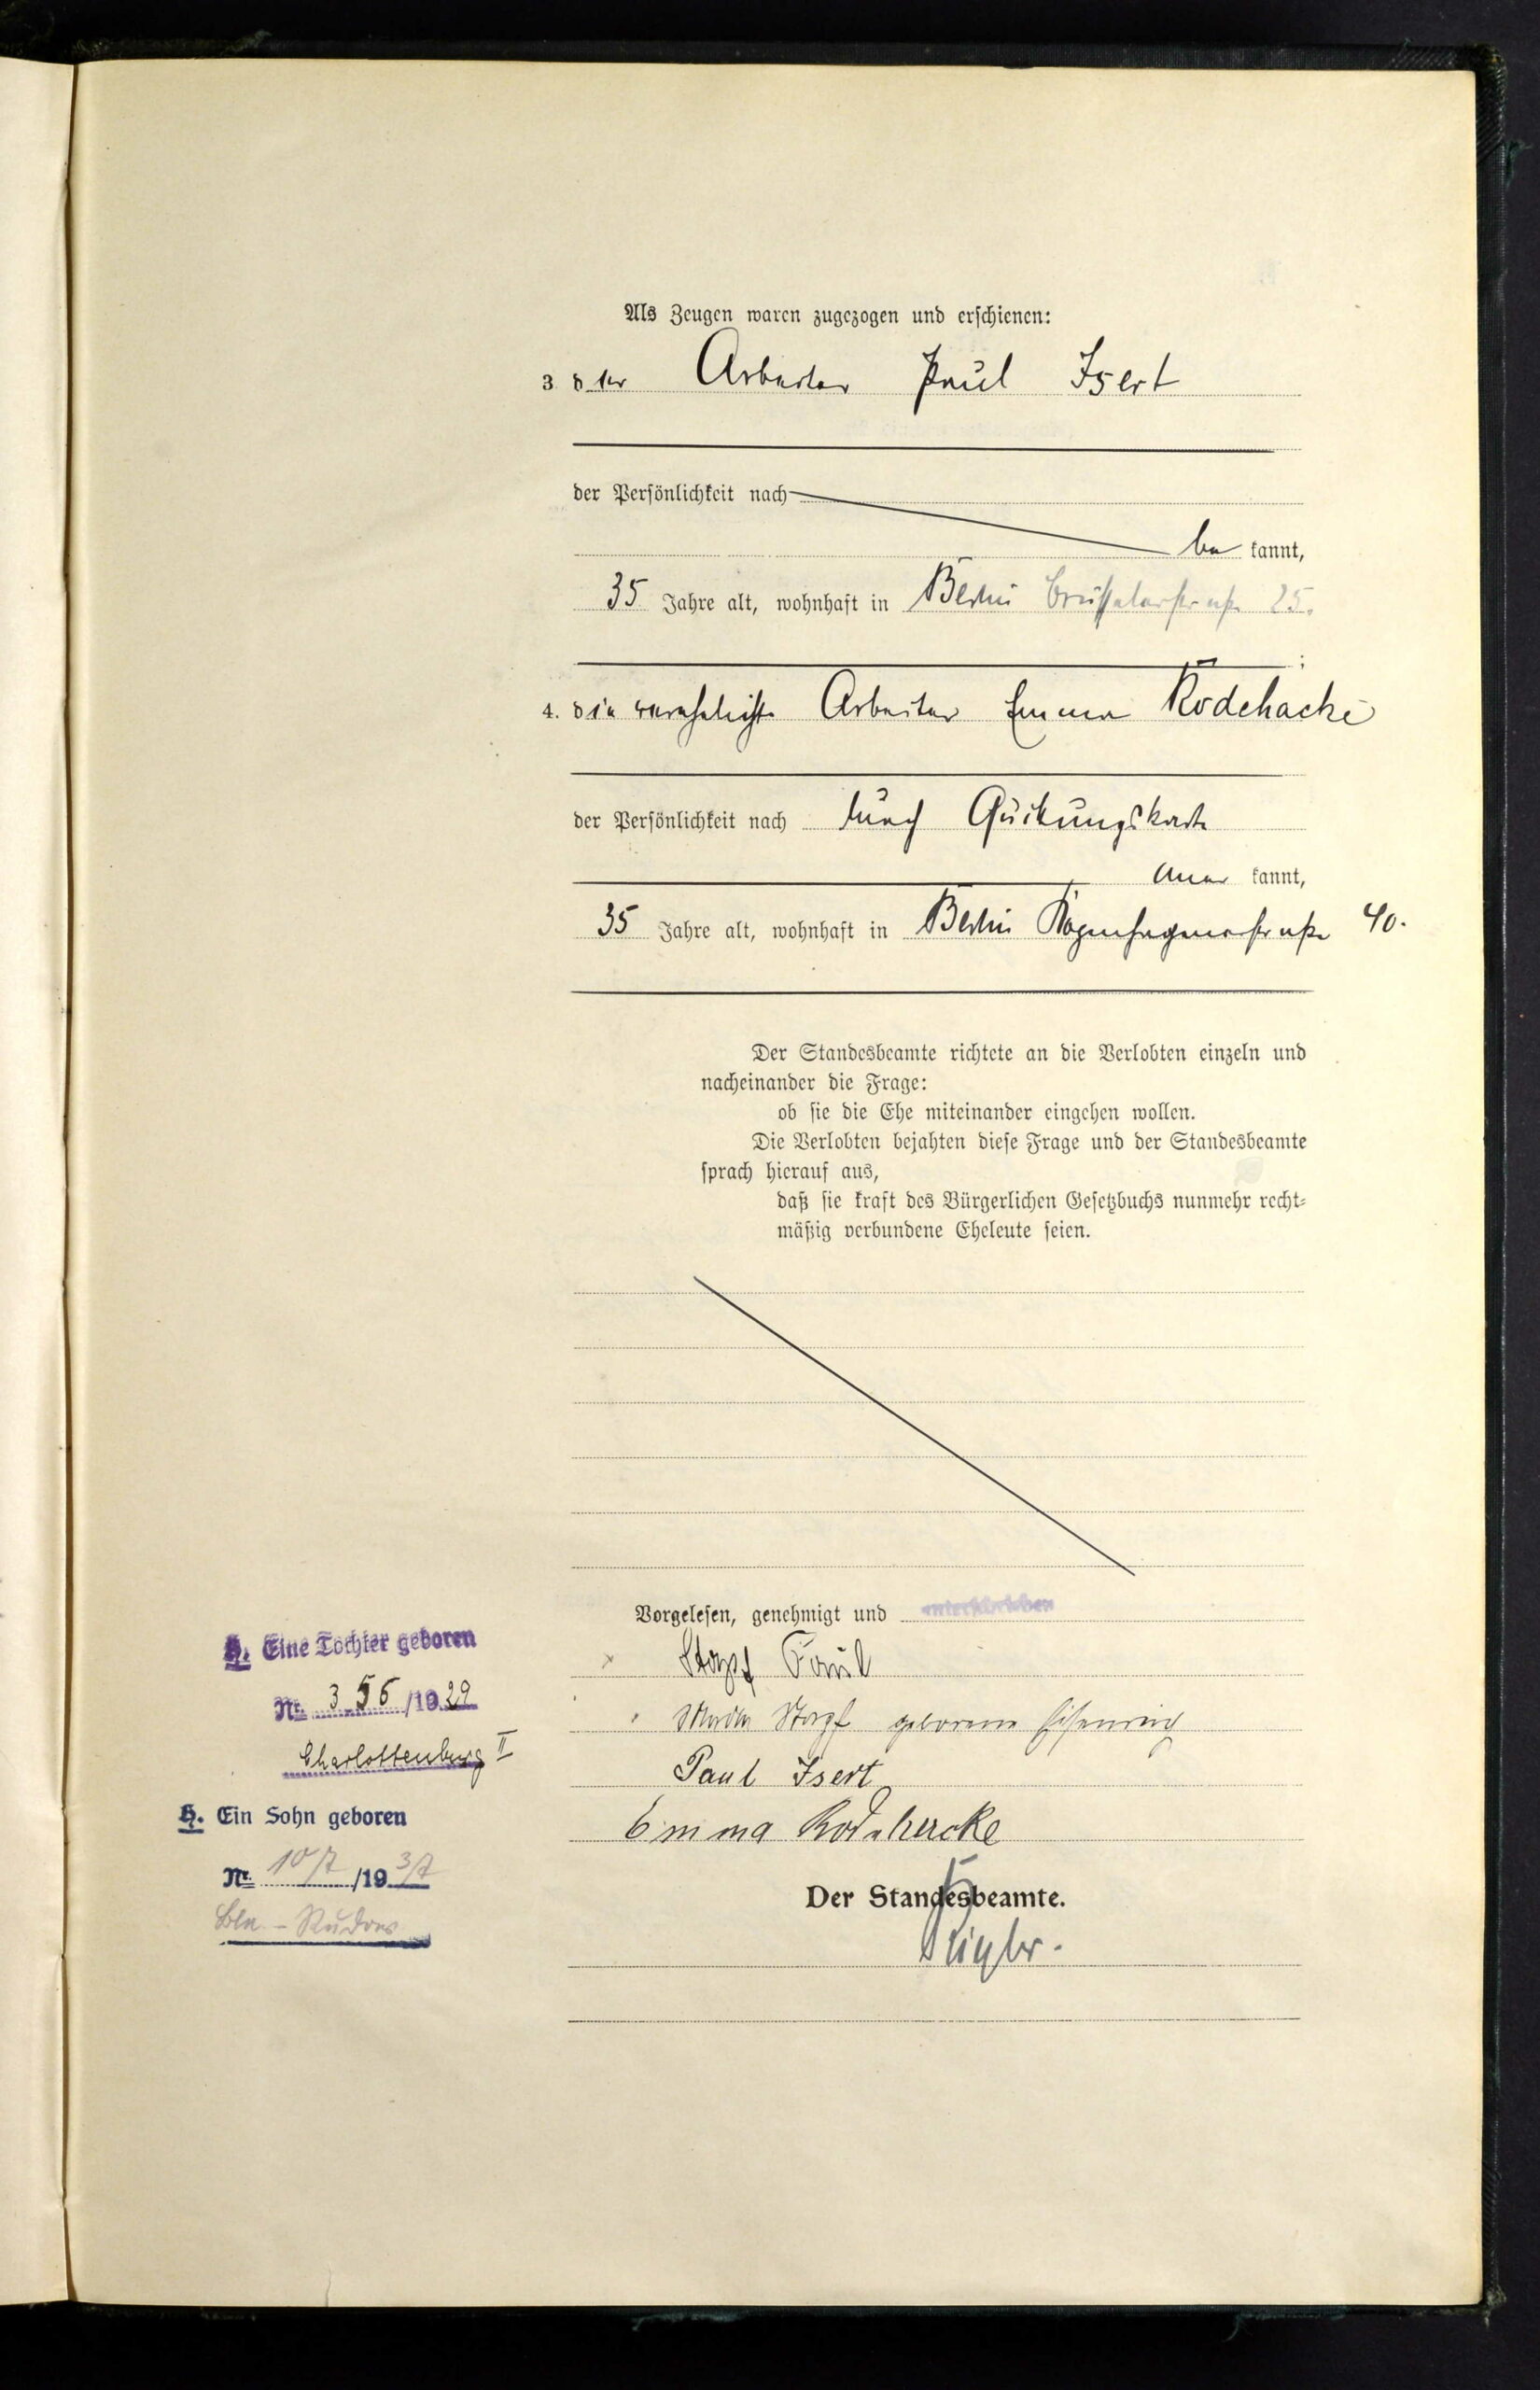 Als Zeugen waren zugezogen und erschienen:
3. der Arbeiter Paul Isert
der Persönlichkeit nach
be kannt,
35 Jahre alt, wohnhaft in Berlin Brüsselerstraße 25.
;
4. die verehelichte Arbeiter Emma Rodehacke
der Persönlichkeit nach durch Quittungskarte
aner kannt,
35 Jahre alt, wohnhaft in Berlin Kopenhagenerstraße 40.
Der Standesbeamte richtete an die Verlobten einzeln und
nacheinander die Frage:
ob sie die Ehe miteinander eingehen wollen.
Die Verlobten bejahten diese Frage und der Standesbeamte
sprach hierauf aus,
daß sie kraft des Bürgerlichen Gesetzbuchs nunmehr recht-
mäßig verbundene Eheleute seien.
Vorgelesen, genehmigt und unterschrieben
Paul
geborene
Paul Isert
Emma Rodehacke
Der Standesbeamte.
H. Eine Tochter geboren
Nr. 356/1929
Charlottenburg II
H. Ein Sohn geboren
Nr. 107/1937
Bln - Rudow